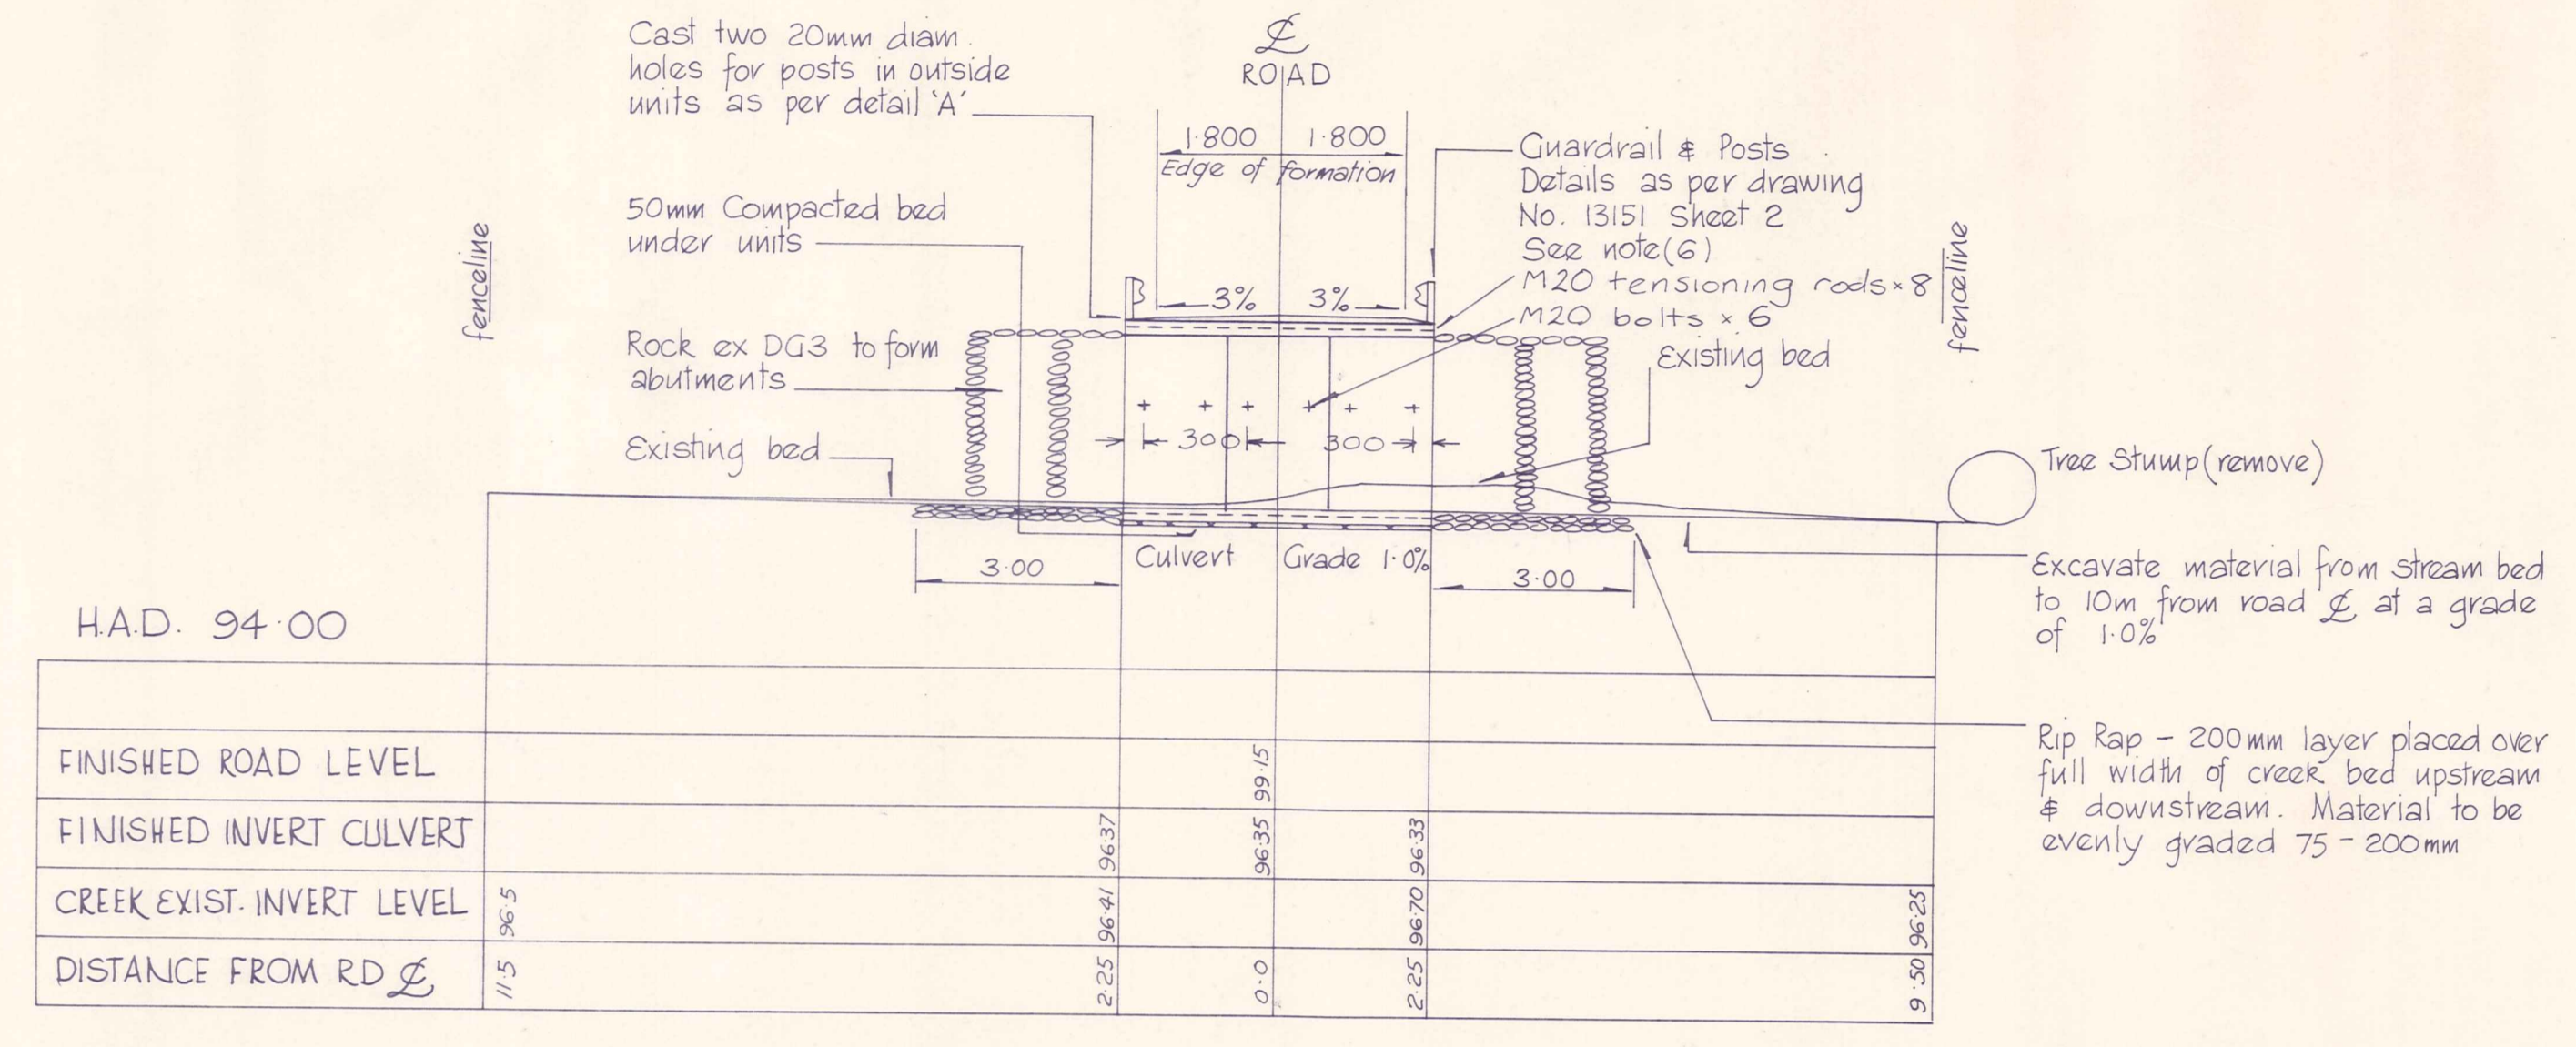 Cast two 20mm diam.
holes for posts in outside
units as per detail 'A'
℄
ROAD
1·800 1·800
Edge of formation
Guardrail & Posts
Details as per drawing
No. 13151 Sheet 2
See note(6)
M20 tensioning rods × 8
M20 bolts × 6
50mm Compacted bed
under units
fenceline
fenceline
3% 3%
Rock ex DG3 to form
abutments
Existing bed
Existing bed
300 300
Tree Stump (remove)
Culvert Grade 1·0%
3·00
3·00
Excavate material from stream bed
to 10m from road ℄ at a grade
of 1·0%
H.A.D. 94·00
Rip Rap - 200mm layer placed over
full width of creek bed upstream
& downstream. Material to be
evenly graded 75 - 200mm
FINISHED ROAD LEVEL 99·15
FINISHED INVERT CULVERT 96·37 96·35 96·33
CREEK EXIST. INVERT LEVEL 96·5 96·41 96·70 96·25
DISTANCE FROM RD ℄ 11·5 2·25 0·0 2·25 9·50